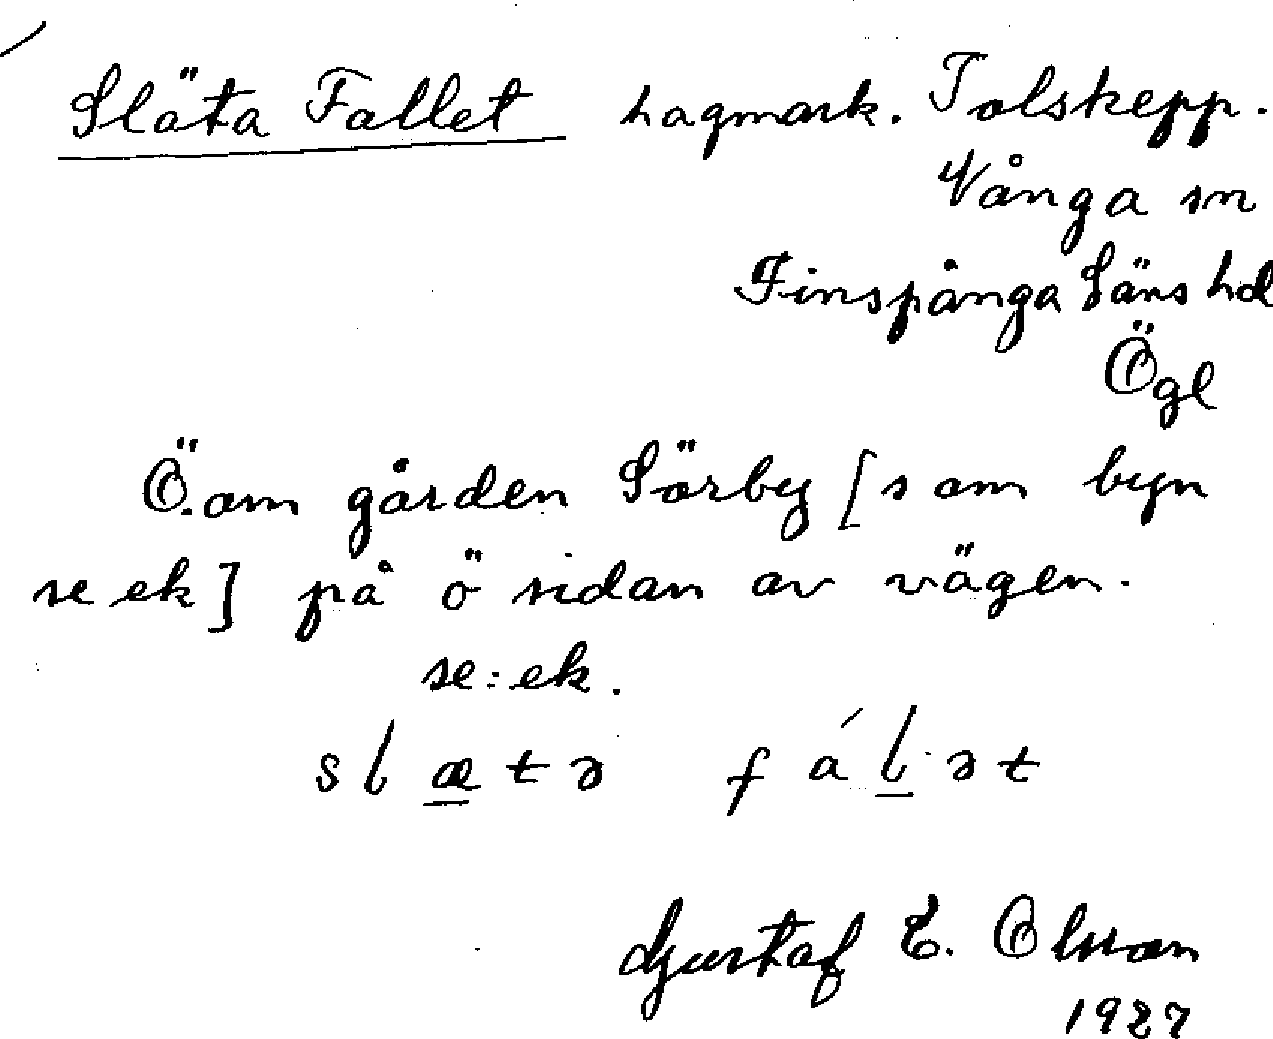 Släta Fallet hagmark. Tolskepp.
Vånga sn
Finspånga läns hd
Ögl
Ö. om gården Sörby [som byn
se ek] på ö sidan av vägen.
se: ek.
sl æ t ə f á l· ə t
Gustaf E. Olsson
1927